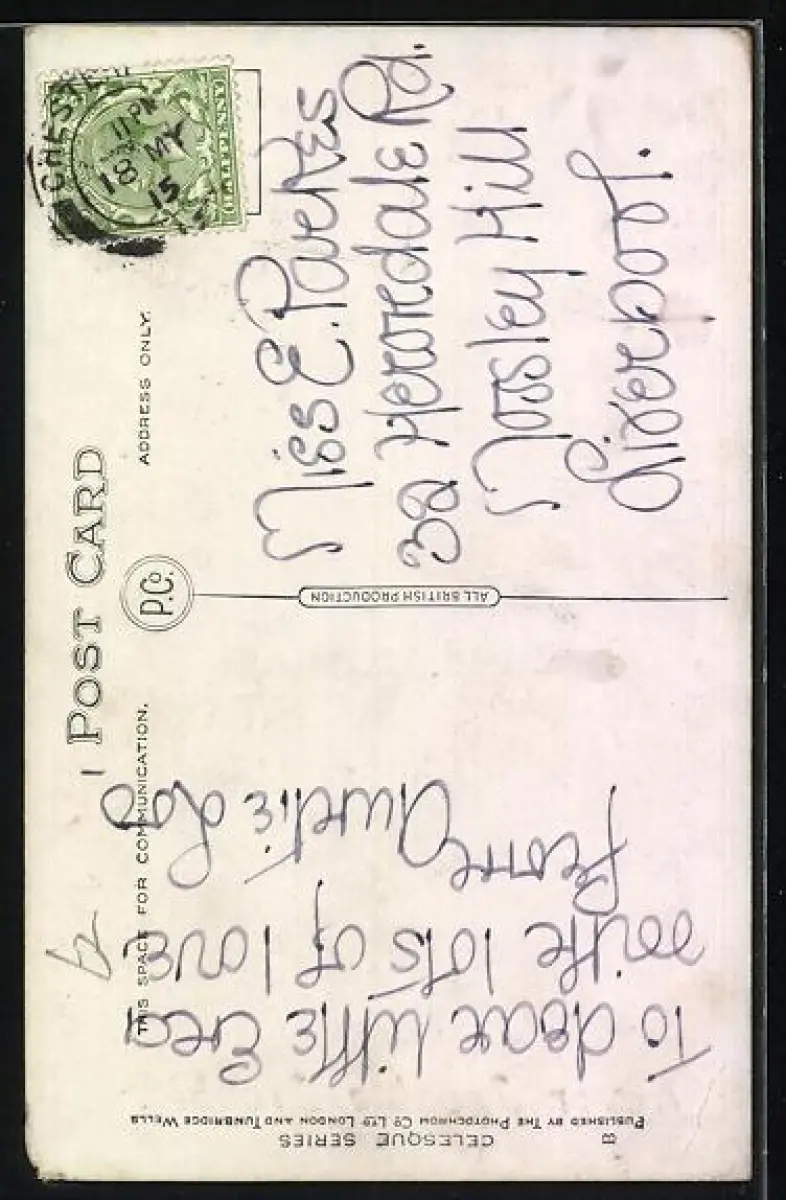 POST CARD
THIS SPACE FOR COMMUNICATION.
ADDRESS ONLY.
P.Co.
ALL BRITISH PRODUCTION
HALFPENNY
CHESTER
11 PM
18 MY
15
Miss E. Parkes
32 Herondale Rd.
Mossley Hill
Liverpool.
To dear little Ena
with lots of love
from Auntie Lo
B
CELESQUE SERIES
PUBLISHED BY THE PHOTOCHROM CO LTD LONDON AND TUNBRIDGE WELLS